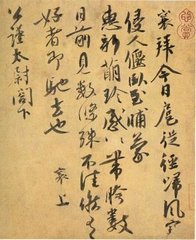 襄拜今日扈從徑歸風寒
侵人偃臥至晡蒙
惠新萌珍感〻帶胯數
日前見數條殊不佳候有
好者即馳去也 襄上
公謹太尉閣下